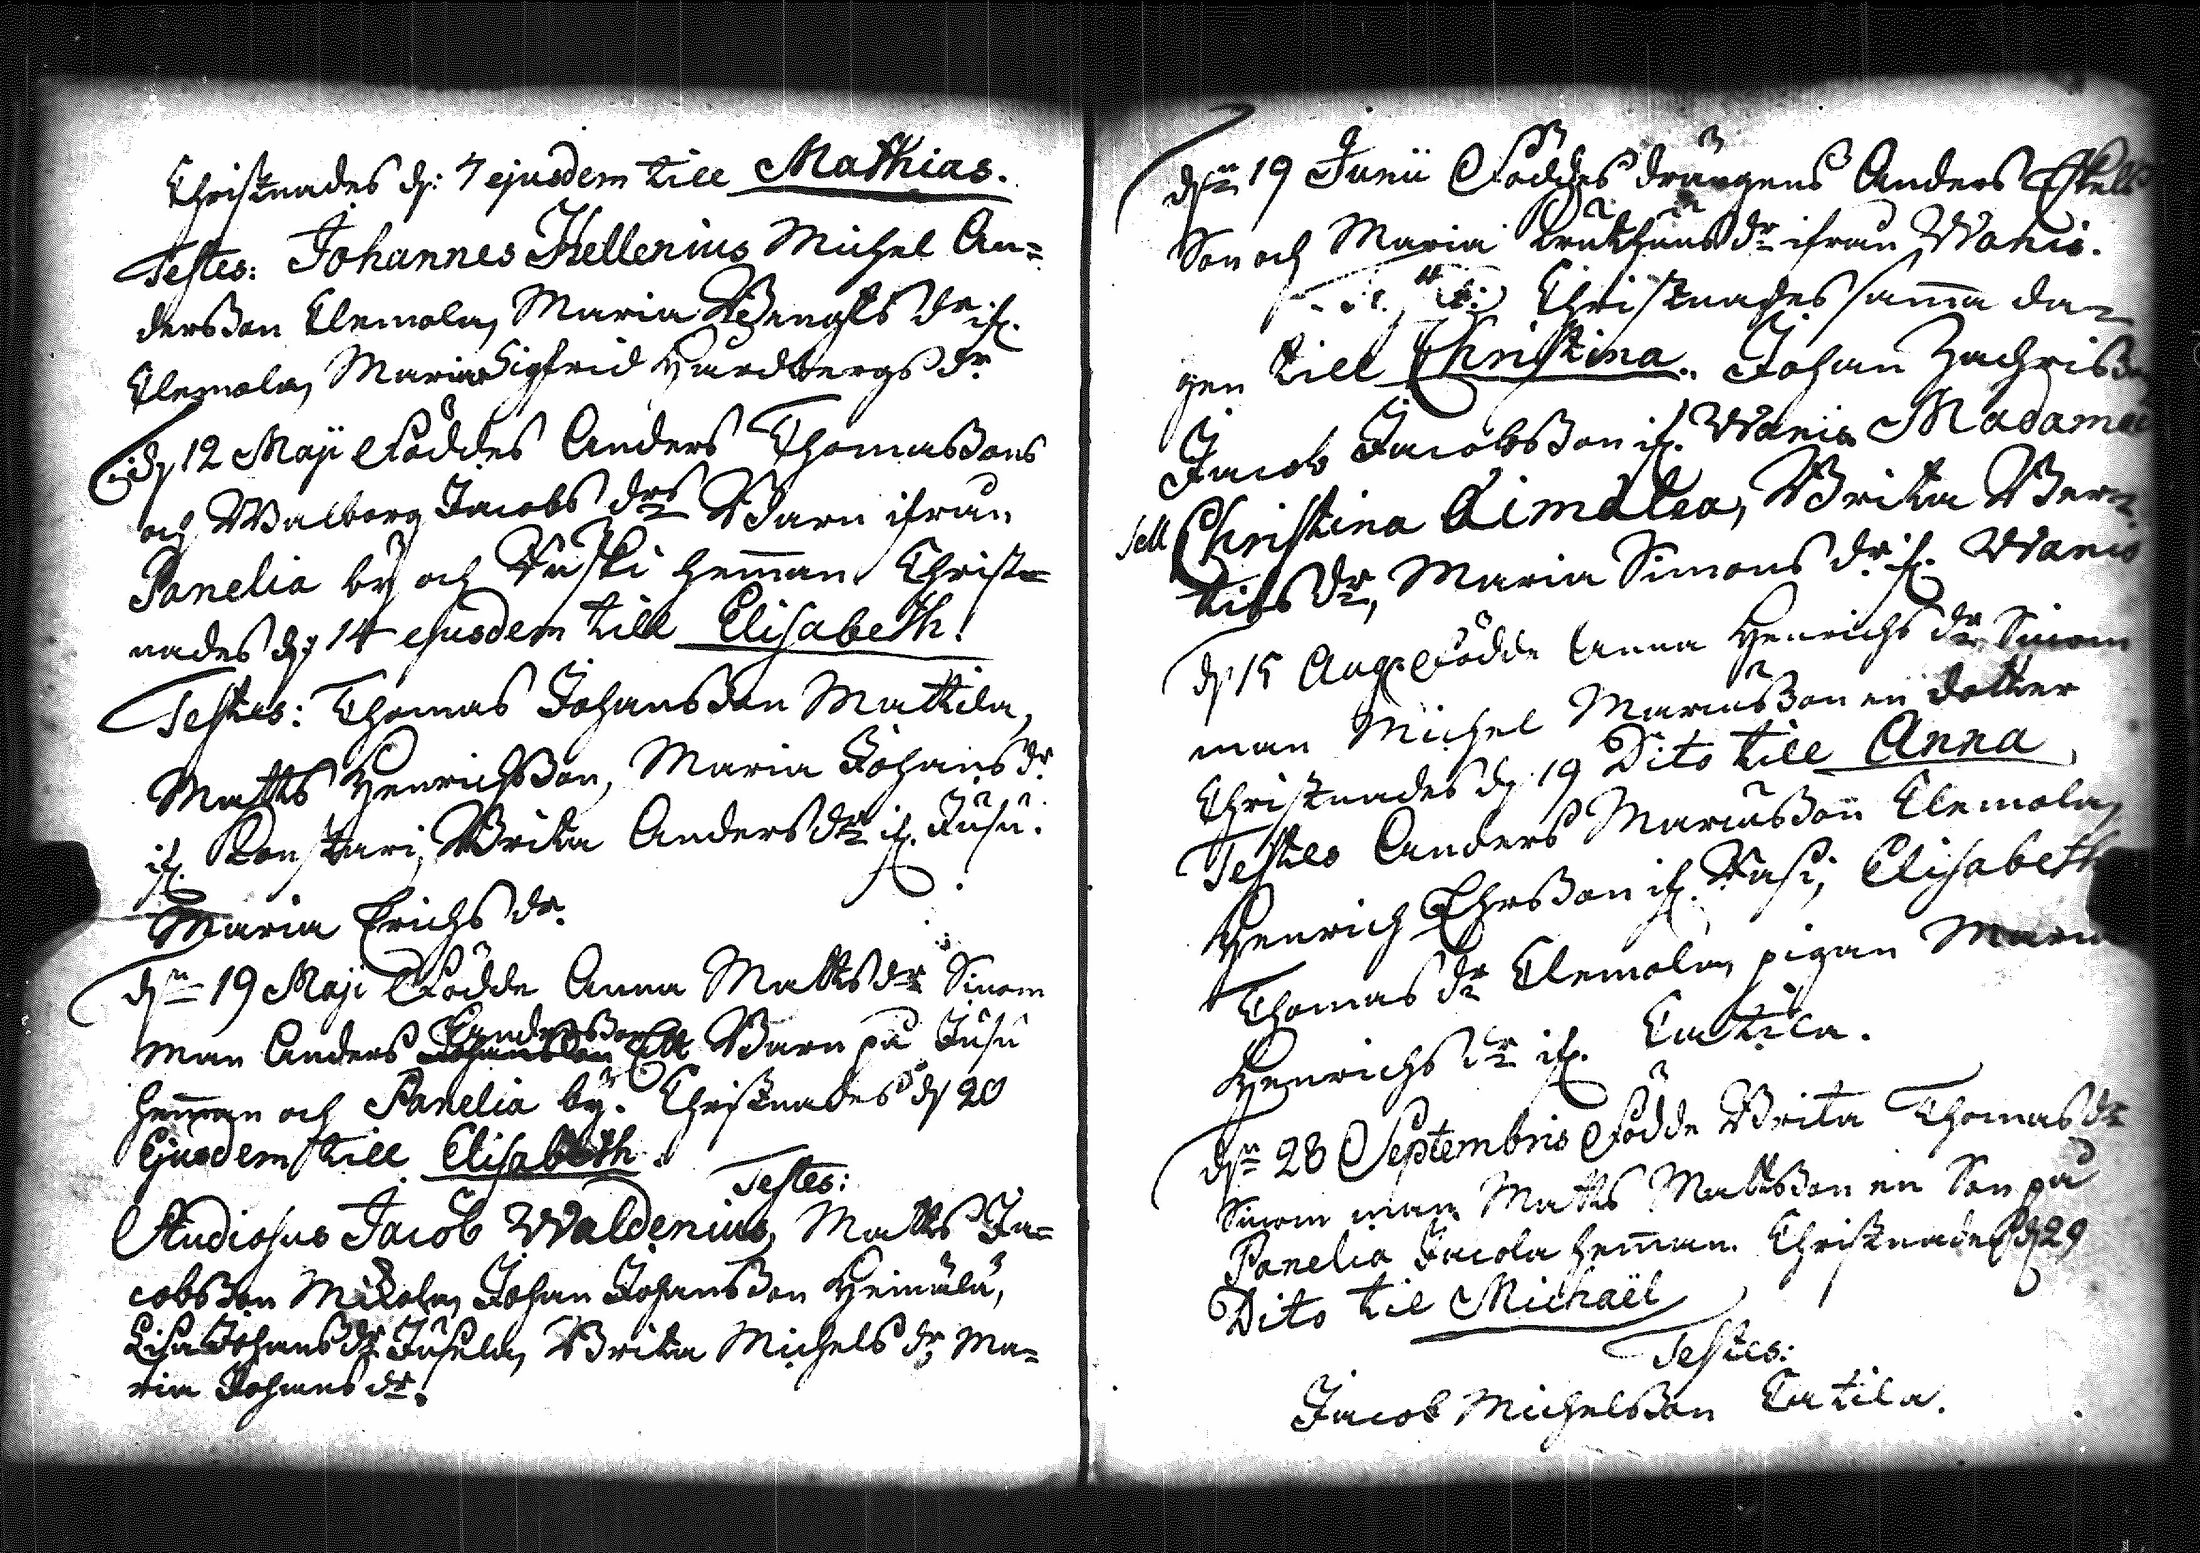 Christnades d: 7 ejusdem till Mathias.
Testes: Johannes Hellenius Michel An=
dersson Clemola, Maria Bengts dr if.
Clemola, Maria Sigfrid Hurdbergs dr
d 12 Maji Föddes Anders Thomassons
och Walborg Jacobs drs Barn ifrån
Panelia by och Kuski hemman Christ=
nades d: 14 ejusdem till Elisabeth.
Testes: Thomas Johansson Mattila,
Matts Henrichsson, Maria Johans dr
if. Konstari, Brita Anders dr if. Jusu.
Maria Erichs dr.
dn 19 Maji Födde Anna Matts dr Sinom
man Anders Andersson Ett Barn på Jusu
hemman och Panelia by. Christnades d 20
Ejusdem till Elisabeth. Testes:
Studiosus Jacob Waldenius, Matts Ja=
cobsson Mikola, Johan Johansson Heinälä,
Lisa Johans dr Jusela, Brita Michels dr Ma=
ria Johans dr.
dn 19 Junii Föddes drängens Anders
Son och Maria dr ifrån Wanis.
Christnades samma da=
gen till Christina. Johan Zachrisson
Jacob Jacobsson if. Wanis Madame
Christina Aimalea, Brita Ber=
tils dr, Maria Simons dr if. Wanis
d 15 Aug: Födde Anna Henrichs dr Sinom
man Michel Mariusson en dotter
Christnades d 19 Dito till Anna
Testes Anders Mariusson Clemola,
Henrich Ehrsson if. Kasi, Elisabeth
Thomas dr Clemola, pigan Maria
Henrichs dr if. Catila.
dn 28 Septembris Födde Brita Thomas dr
Sinom man Matts Mattsson en Son på
Panelia Jacola hemman. Christnades d 29
Dito til Michaël
Testes:
Jacob Michelsson Catila.